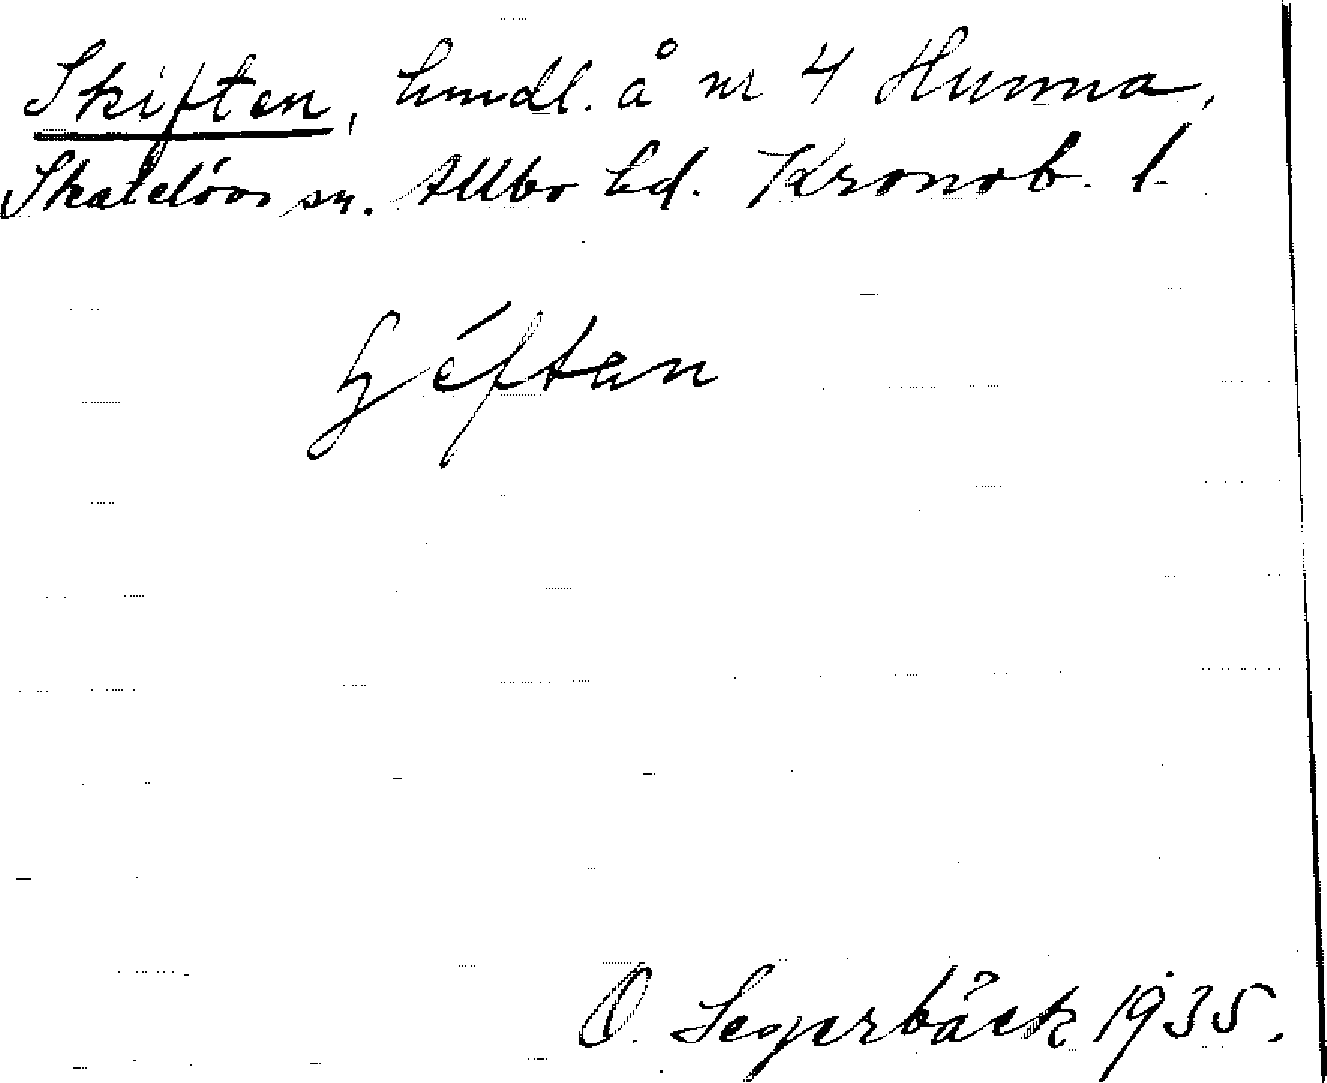 Skiften, hmdl. å nr 4 Hunna,
Skatelövs sn. Allbo hd. Kronob. l.
O. Segerbäck 1935.